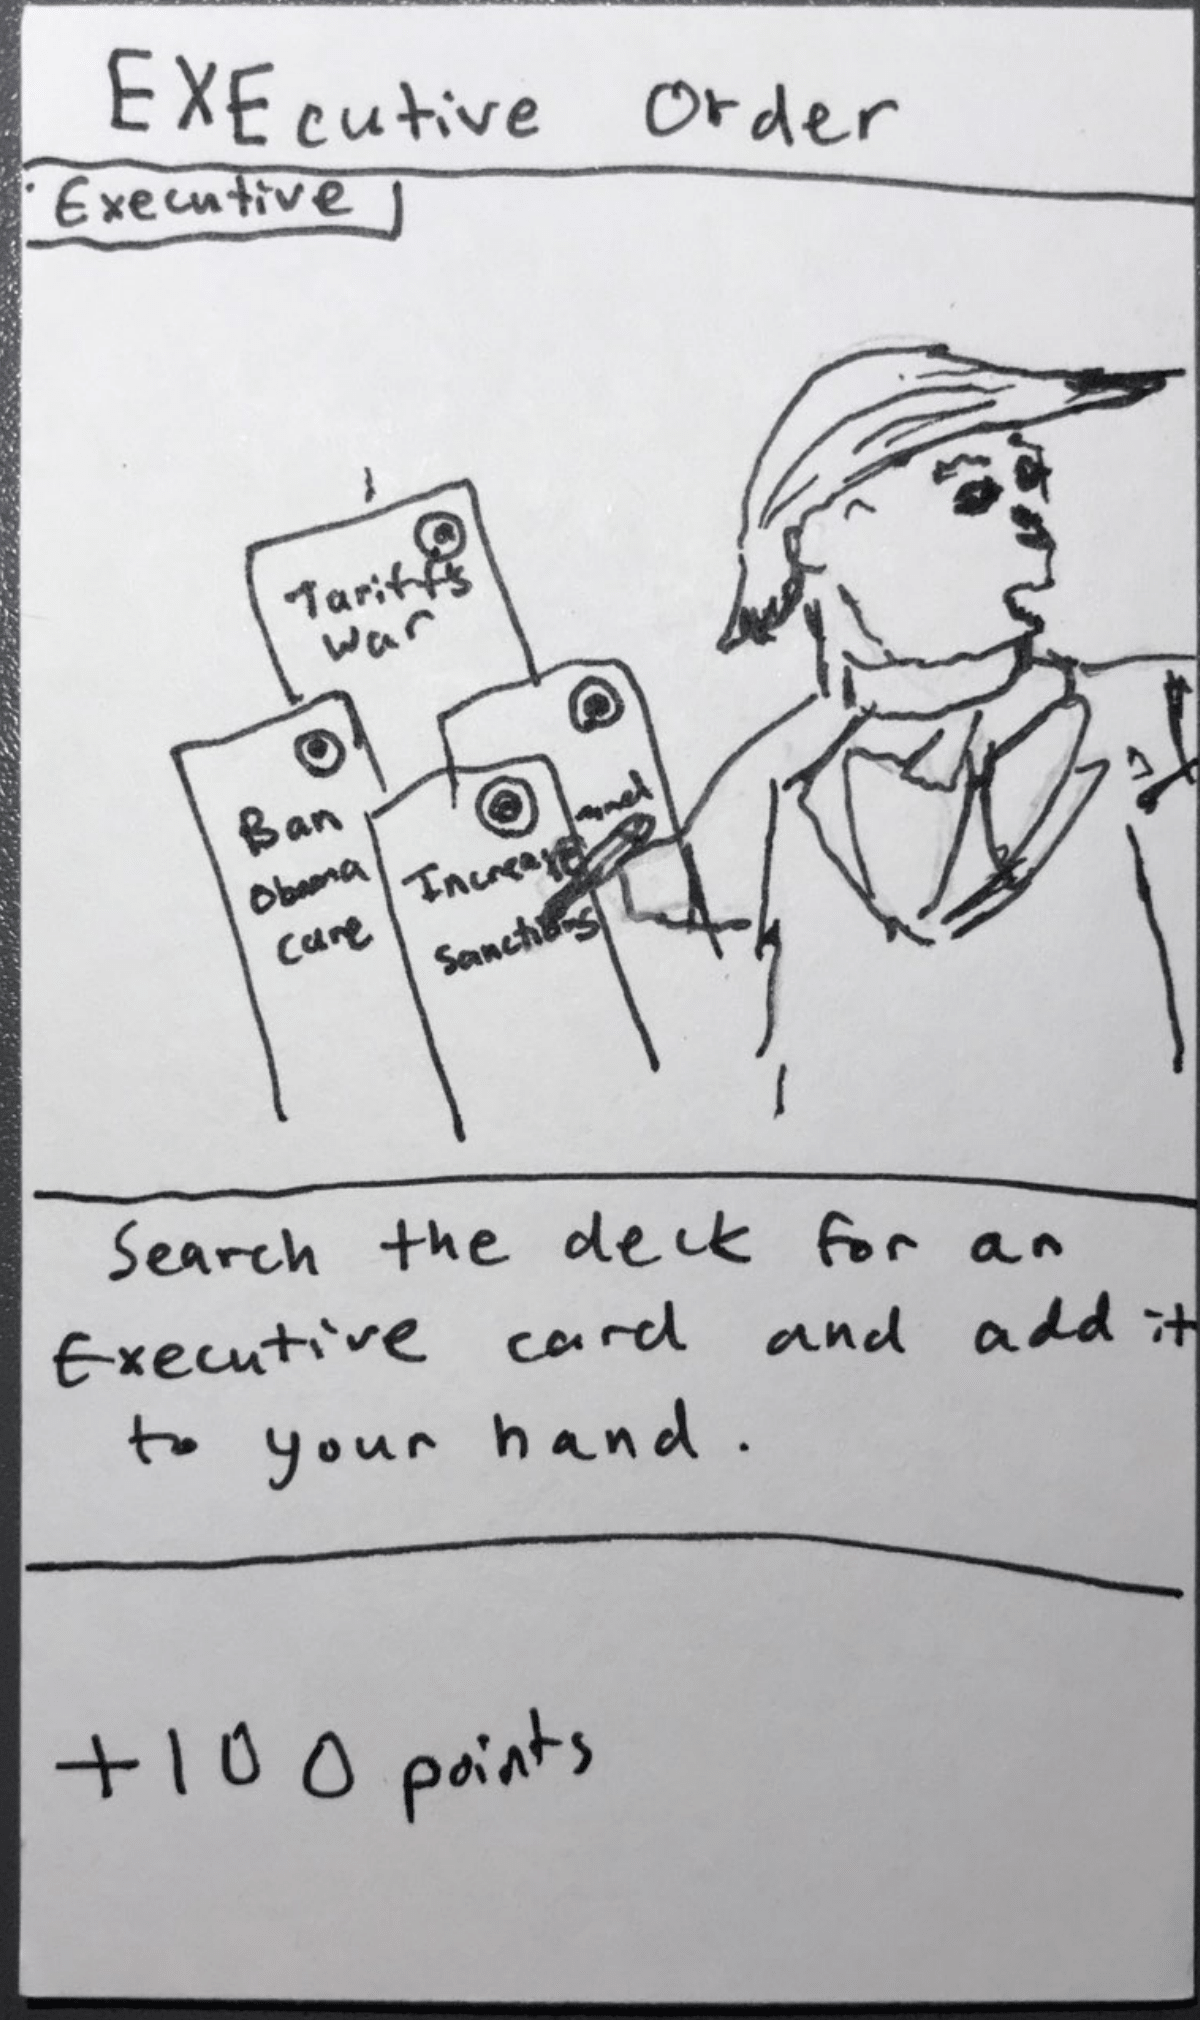 EXEcutive Order
Executive
Tariffs
War
Ban
Obama
Care
Increase
Sanctions
Search the deck for an
Executive card and add it
to your hand.
+100 points